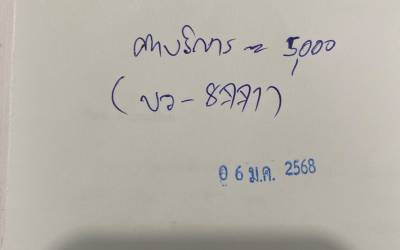 ศาบริการ ~ 5,000
(บว - 8771)
0 6 ม.ค. 2568